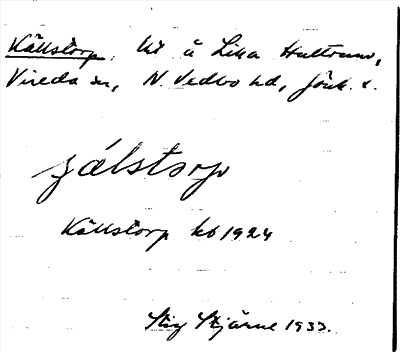 Källstorp, ht å Lilla Hultrum,
Vireda sn, N. Vedbo hd, Jönk. l.
zálstorp
Källstorp kb 1924
Stig Stjärne 1933.